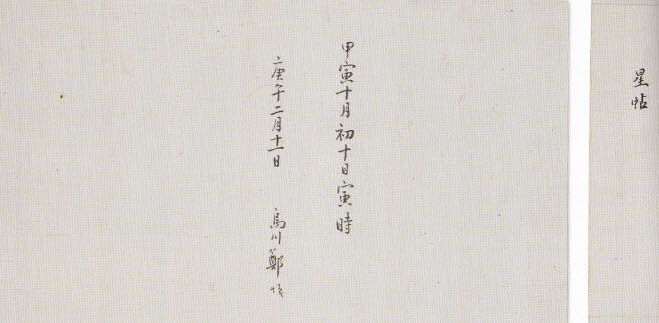 星帖
甲寅十月初十日寅時
庚午二月十一日 烏川鄭